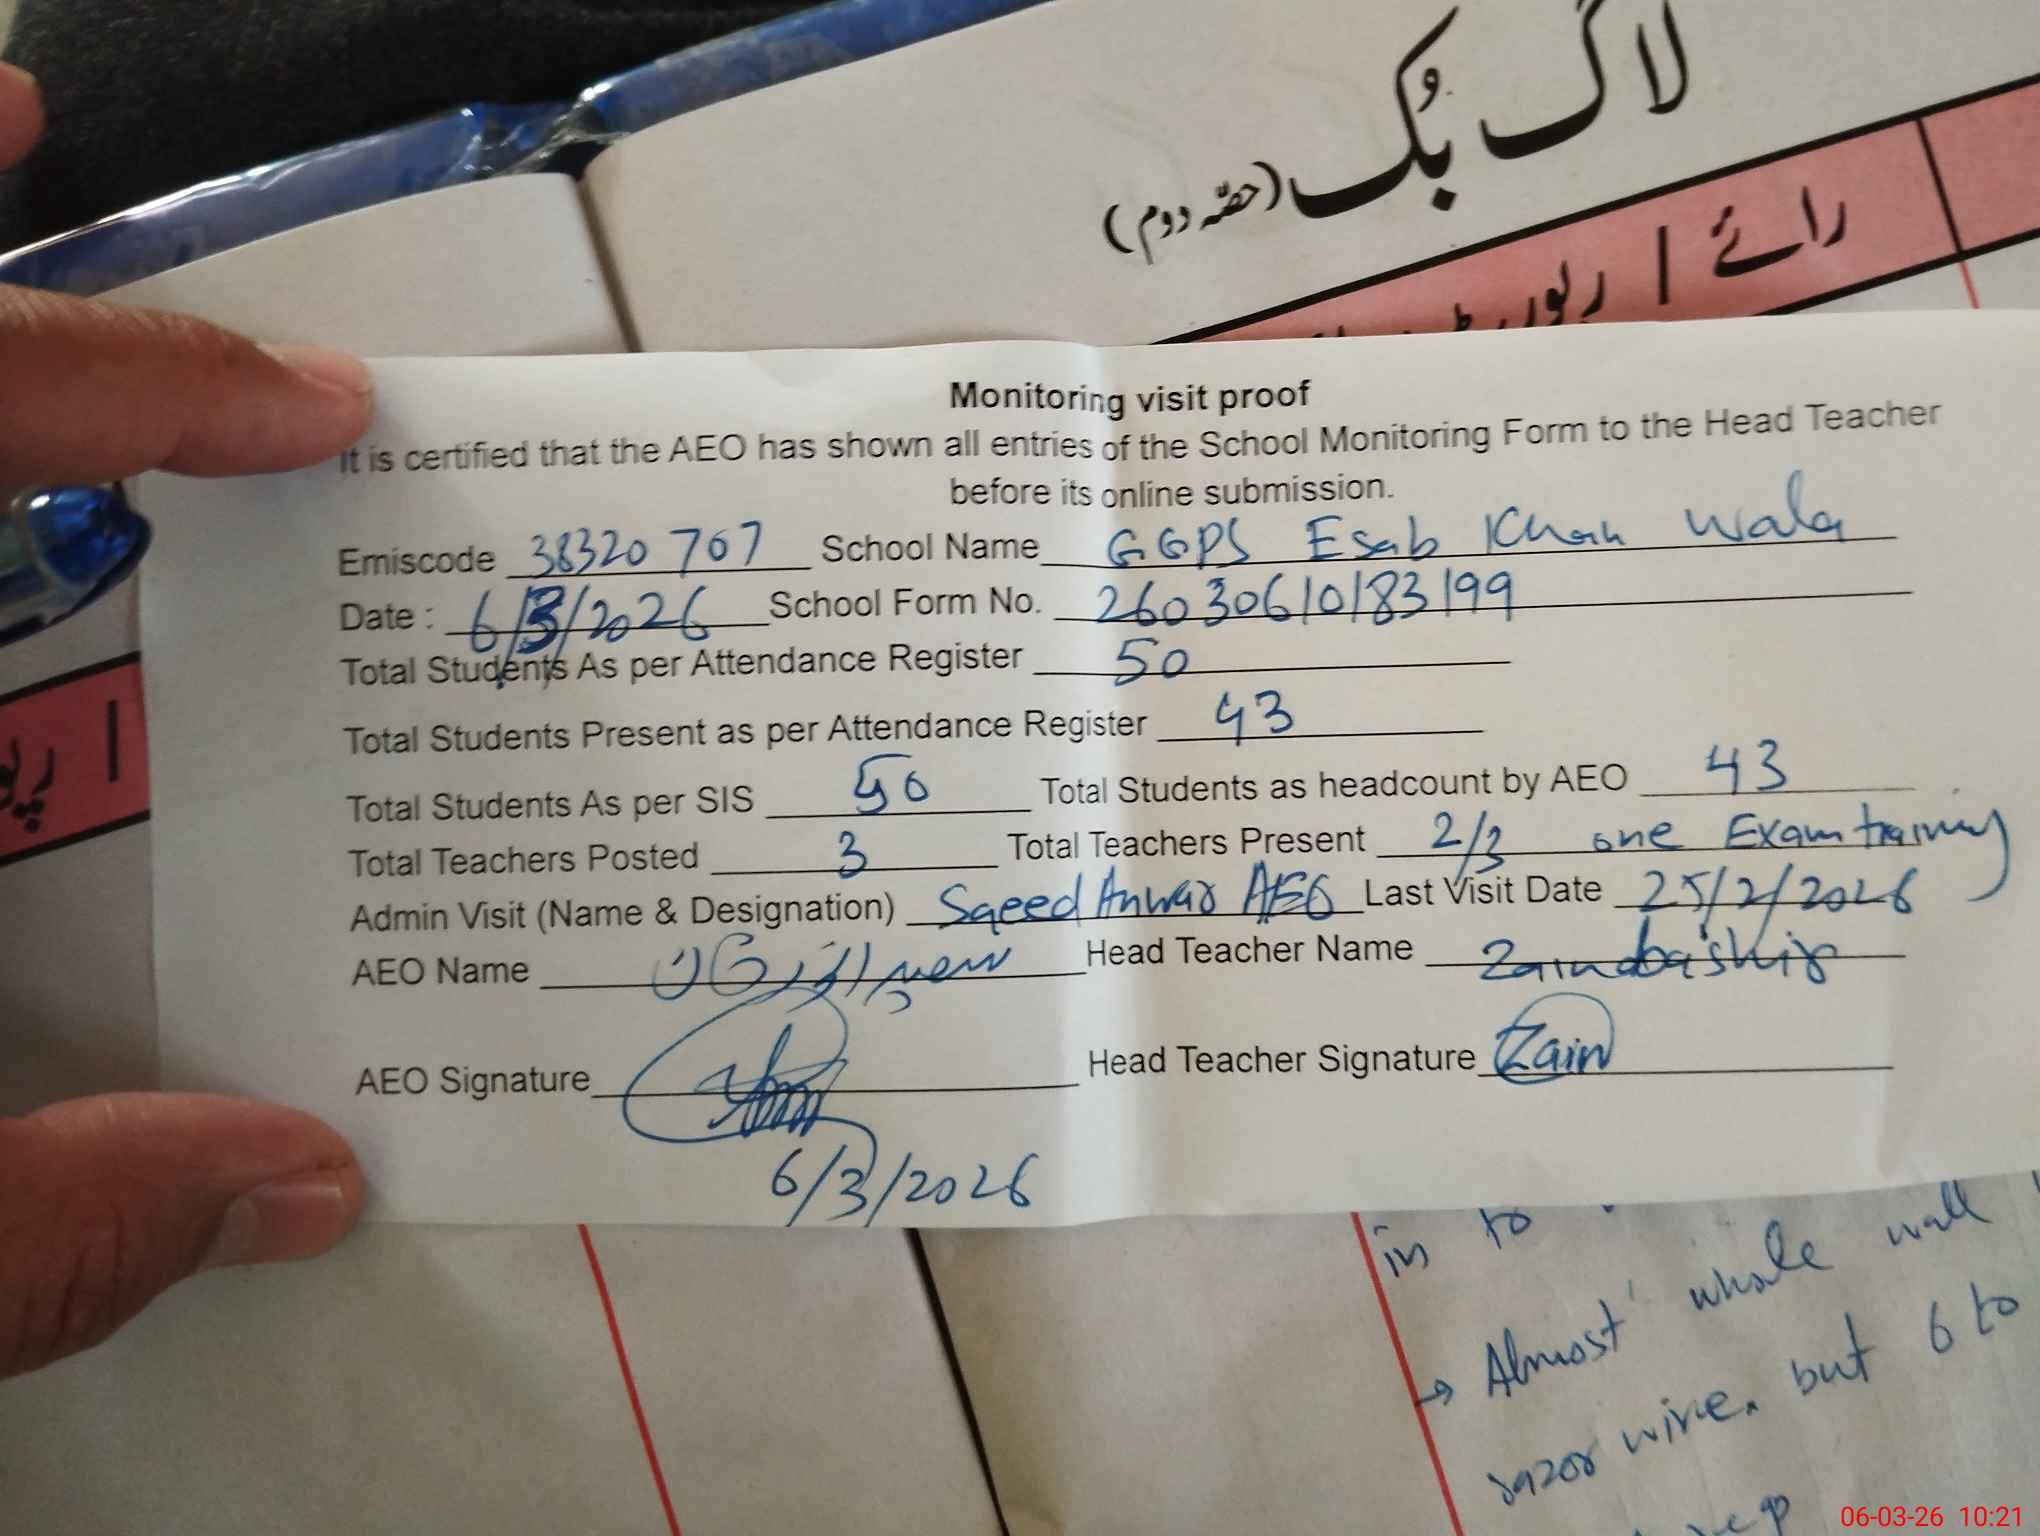 لاگ بُک (حصّہ دوم)
رائے / رپورٹ
Monitoring visit proof
It is certified that the AEO has shown all entries of the School Monitoring Form to the Head Teacher
before its online submission.
Emiscode 38320707 School Name GGPS Esab Khan Wala
Date : 6/3/2026 School Form No. 26030610183199
Total Students As per Attendance Register 50
Total Students Present as per Attendance Register 43
Total Students As per SIS 50 Total Students as headcount by AEO 43
Total Teachers Posted 3 Total Teachers Present 2/3 one Exam training
Admin Visit (Name & Designation) Saeed Anwar AEO Last Visit Date 25/2/2026
AEO Name Head Teacher Name Zainab
AEO Signature Head Teacher Signature Zain
6/3/2026
in to
→ Almost whole wall
razor wire. but 6 to
06-03-26 10:21